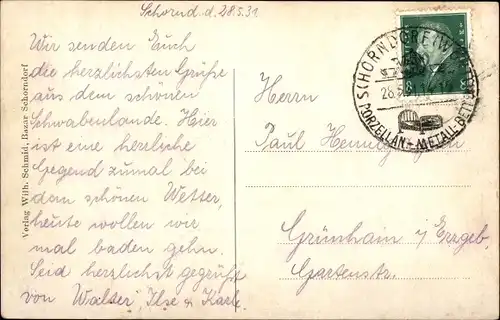 Schornd. d. 28.5.31.
Wir senden Euch
die herzlichsten Grüße
aus dem schönen
Schwabenlande. Hier
ist eine herrliche
Gegend zumal bei
dem schönen Wetter,
heute wollen wir
mal baden gehn.
Seid herzlichst gegrüßt
von Walter, Ilse & Karle.
Verlag Wilh. Schmid, Bazar Schorndorf
SCHORNDORF (WÜRTT)
28.5.
PORZELLAN - METALL-
Herrn
Paul
Grünhain i/Erzgeb.
Gartenstr.